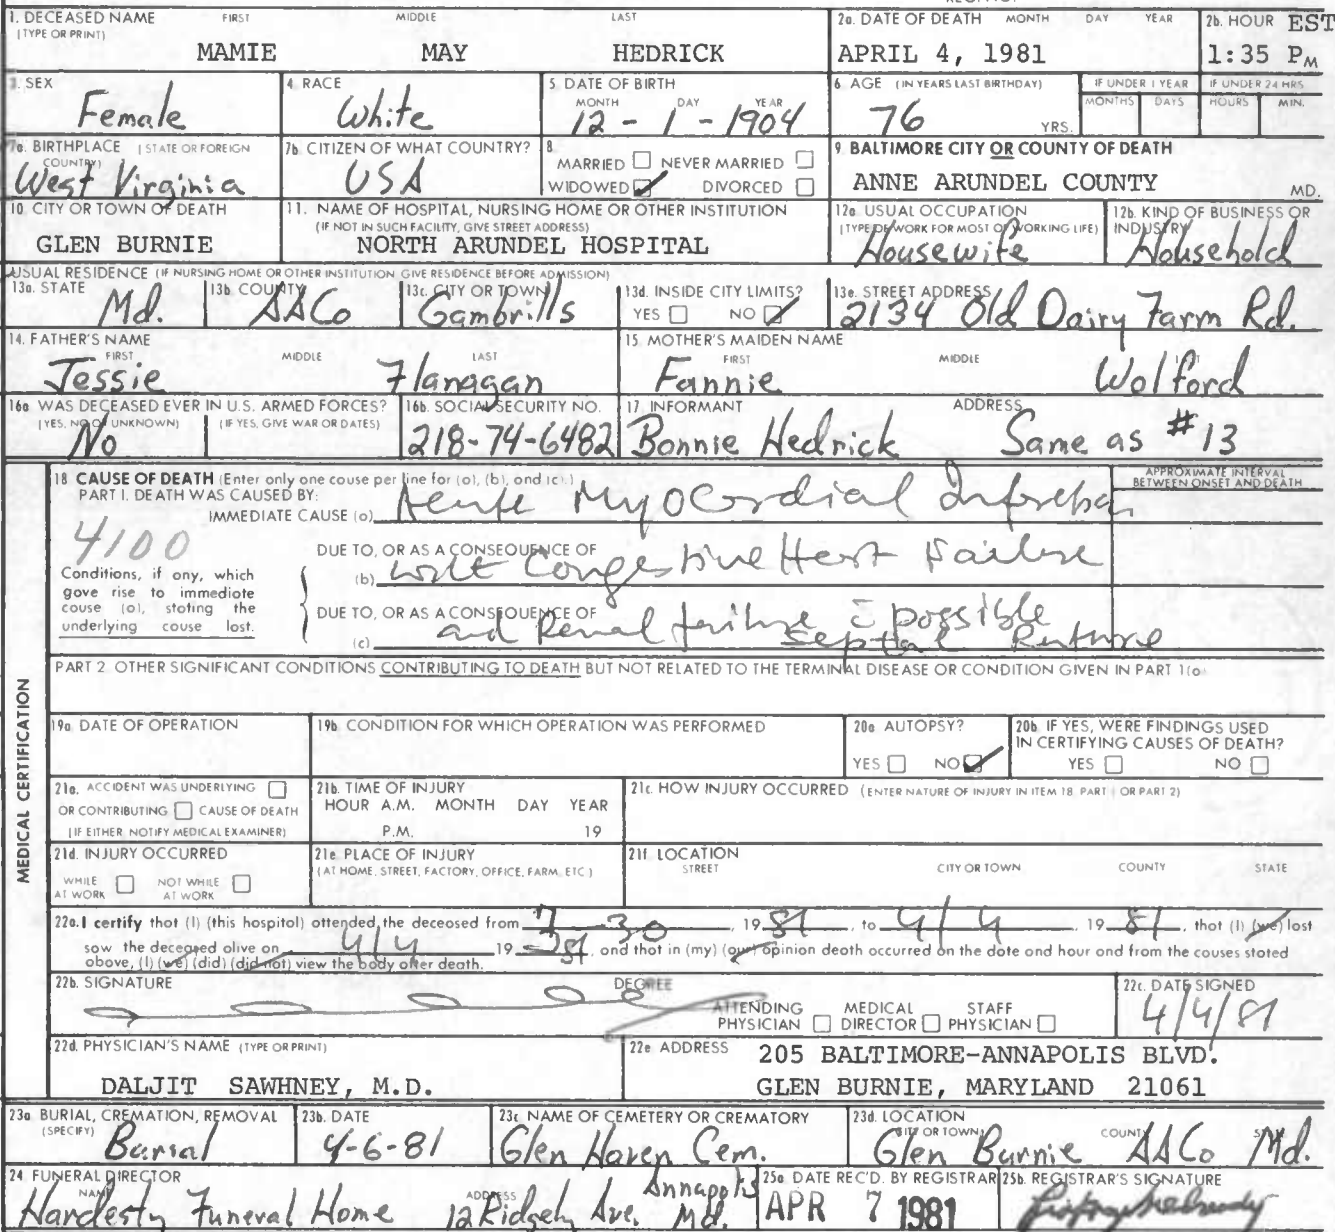 1. DECEASED NAME FIRST MIDDLE LAST
(TYPE OR PRINT)
MAMIE MAY HEDRICK
2a. DATE OF DEATH MONTH DAY YEAR
APRIL 4, 1981
2b. HOUR EST
1:35 PM
3. SEX
Female
4. RACE
White
5. DATE OF BIRTH
MONTH DAY YEAR
12 - 1 - 1904
6. AGE (IN YEARS LAST BIRTHDAY)
76 YRS.
IF UNDER 1 YEAR
MONTHS DAYS
IF UNDER 24 HRS
HOURS MIN.
7a. BIRTHPLACE (STATE OR FOREIGN
COUNTRY)
West Virginia
7b. CITIZEN OF WHAT COUNTRY?
USA
8.
MARRIED NEVER MARRIED
WIDOWED DIVORCED
9. BALTIMORE CITY OR COUNTY OF DEATH
ANNE ARUNDEL COUNTY MD.
10. CITY OR TOWN OF DEATH
GLEN BURNIE
11. NAME OF HOSPITAL, NURSING HOME OR OTHER INSTITUTION
(IF NOT IN SUCH FACILITY, GIVE STREET ADDRESS)
NORTH ARUNDEL HOSPITAL
12a. USUAL OCCUPATION
(TYPE OF WORK FOR MOST OF WORKING LIFE)
Housewife
12b. KIND OF BUSINESS OR
INDUSTRY
Household
USUAL RESIDENCE (IF NURSING HOME OR OTHER INSTITUTION GIVE RESIDENCE BEFORE ADMISSION)
13a. STATE
Md.
13b. COUNTY
AACo
13c. CITY OR TOWN
Gambrills
13d. INSIDE CITY LIMITS?
YES NO
13e. STREET ADDRESS
2134 Old Dairy Farm Rd.
14. FATHER'S NAME
FIRST MIDDLE LAST
Jessie Flanagan
15. MOTHER'S MAIDEN NAME
FIRST MIDDLE
Fannie Wolford
16a. WAS DECEASED EVER IN U.S. ARMED FORCES?
(YES, NO OR UNKNOWN) (IF YES, GIVE WAR OR DATES)
No
16b. SOCIAL SECURITY NO.
218-74-6482
17. INFORMANT ADDRESS
Bonnie Hedrick Same as #13
MEDICAL CERTIFICATION
18. CAUSE OF DEATH (Enter only one cause per line for (a), (b), and (c).)
PART I. DEATH WAS CAUSED BY:
APPROXIMATE INTERVAL
BETWEEN ONSET AND DEATH
IMMEDIATE CAUSE (a) Acute Myocardial
4100
DUE TO, OR AS A CONSEQUENCE OF
(b) Congestive Heart Failure
Conditions, if any, which
gave rise to immediate
cause (a), stating the
underlying cause last.
DUE TO, OR AS A CONSEQUENCE OF
(c) and Renal failure c̄ possible
Septal
PART 2. OTHER SIGNIFICANT CONDITIONS CONTRIBUTING TO DEATH BUT NOT RELATED TO THE TERMINAL DISEASE OR CONDITION GIVEN IN PART 1(a)
19a. DATE OF OPERATION
19b. CONDITION FOR WHICH OPERATION WAS PERFORMED
20a. AUTOPSY?
YES NO
20b. IF YES, WERE FINDINGS USED
IN CERTIFYING CAUSES OF DEATH?
YES NO
21a. ACCIDENT WAS UNDERLYING
OR CONTRIBUTING CAUSE OF DEATH
(IF EITHER NOTIFY MEDICAL EXAMINER)
21b. TIME OF INJURY
HOUR A.M. MONTH DAY YEAR
P.M. 19
21c. HOW INJURY OCCURRED (ENTER NATURE OF INJURY IN ITEM 18. PART 1 OR PART 2)
21d. INJURY OCCURRED
WHILE AT WORK NOT WHILE AT WORK
21e. PLACE OF INJURY
(AT HOME, STREET, FACTORY, OFFICE, FARM, ETC.)
21f. LOCATION
STREET CITY OR TOWN COUNTY STATE
22a. I certify that (I) (this hospital) attended the deceased from 30, 1981, to 4/4, 1981, that (I) (we) last
saw the deceased alive on 4/4 1981, and that in (my) (our) opinion death occurred on the date and hour and from the causes stated
above, (I) (we) (did) (did not) view the body after death.
22b. SIGNATURE DEGREE
ATTENDING PHYSICIAN MEDICAL DIRECTOR STAFF PHYSICIAN
22c. DATE SIGNED
4/4/81
22d. PHYSICIAN'S NAME (TYPE OR PRINT)
DALJIT SAWHNEY, M.D.
22e. ADDRESS 205 BALTIMORE-ANNAPOLIS BLVD.
GLEN BURNIE, MARYLAND 21061
23a. BURIAL, CREMATION, REMOVAL
(SPECIFY) Burial
23b. DATE
4-6-81
23c. NAME OF CEMETERY OR CREMATORY
Glen Haven Cem.
23d. LOCATION
CITY OR TOWN COUNTY
Glen Burnie AACo Md.
24. FUNERAL DIRECTOR
NAME ADDRESS
Hardesty Funeral Home 12 Ridgely Ave, Annapolis Md.
25a. DATE REC'D. BY REGISTRAR
APR 7 1981
25b. REGISTRAR'S SIGNATURE